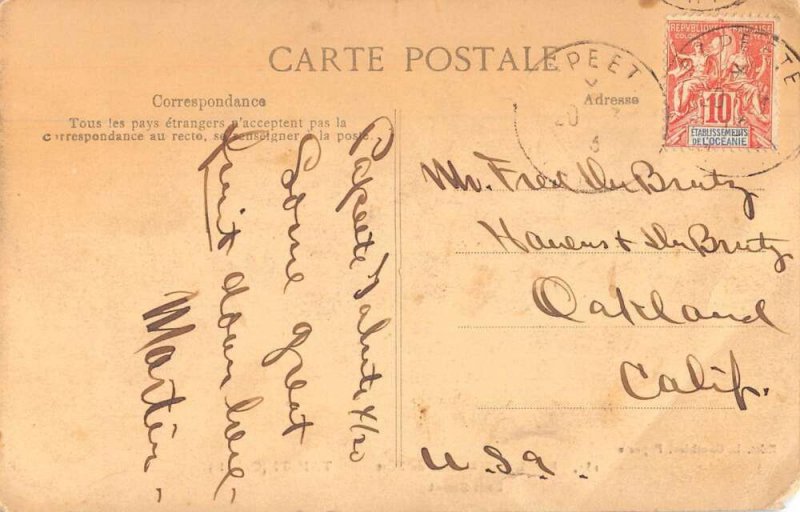 CARTE POSTALE
Correspondance
Tous les pays étrangers n'acceptent pas la
correspondance au recto, se renseigner à la poste.
Adresse
REPVBLIQVE FRANÇAISE
COLONIES POSTES
10
ÉTABLISSEMENTS
DE L'OCÉANIE
PAPEETE
20
Papeete Tahiti 4/20
Some great
fruit down here -
Martin -
Mr. Fred Du Brutz
Havens & Du Brutz
Oakland
Calif.
U.S.A.